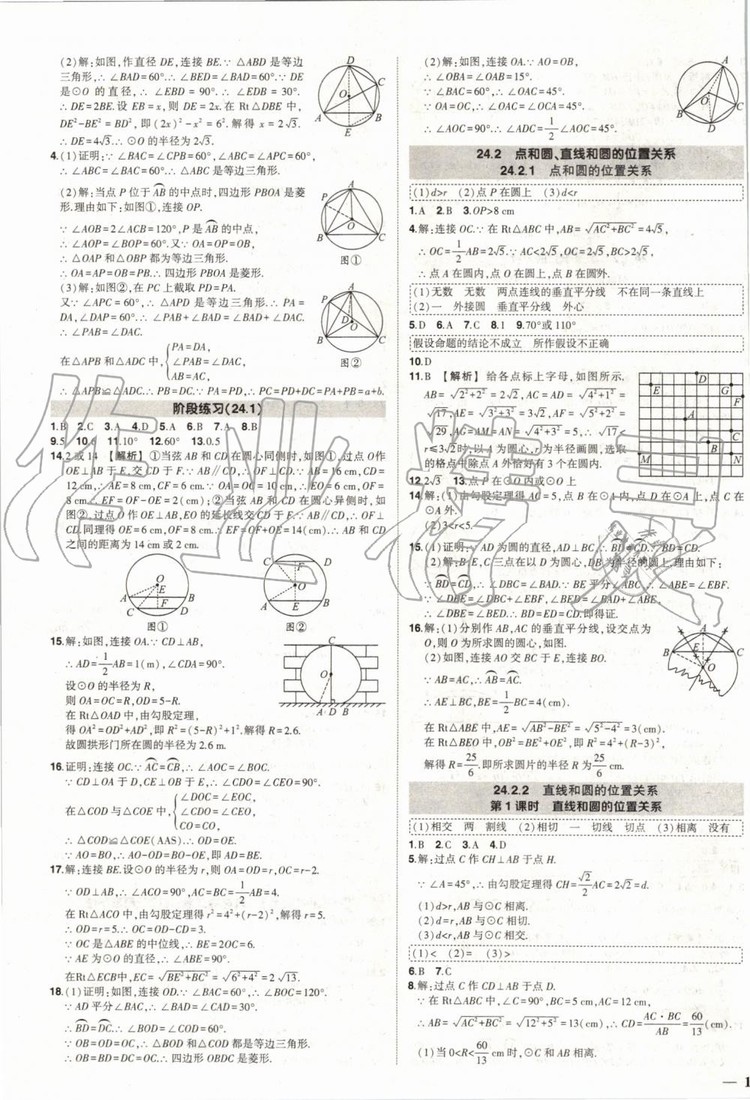 (2)解:如图,作直径 DE,连接 BE.∵ △ABD 是等边
三角形,∴ ∠BAD=60°.∴ ∠BED=∠BAD=60°.∵ DE
是⊙O 的直径,∴ ∠EBD = 90°.∴ ∠EDB = 30°.
∴ DE=2BE.设 EB=x,则 DE=2x.在 Rt△DBE 中,
DE²-BE² = BD²,即(2x)²-x² = 6².解得 x = 2√3.
∴ DE=4√3.∴ ⊙O 的半径为 2√3.
4.(1)证明:∵ ∠BAC=∠CPB=60°,∠ABC=∠APC=60°,
∴ ∠ABC=∠BAC=60°.∴ △ABC 是等边三角形.
(2)解:当点 P 位于 AB 的中点时,四边形 PBOA 是菱
形.理由如下:如图①,连接 OP.
∵ ∠AOB=2∠ACB=120°,P 是 AB 的中点,
∴ ∠AOP=∠BOP=60°.又∵ OA=OP=OB,
∴ △OAP 和△OBP 都为等边三角形.
∴ OA=AP=OB=PB.∴ 四边形 PBOA 是菱形.
(3)解:如图②,在 PC 上截取 PD=PA.
又∵ ∠APC = 60°,∴ △APD 是等边三角形.∴ PA =
DA,∠DAP=60°.∴ ∠PAB+∠BAD=∠BAD+∠DAC.
∴ ∠PAB=∠DAC.
在△APB 和△ADC 中,{PA=DA,
∠PAB=∠DAC,
AB=AC,
∴ △APB≌△ADC.∴ PB=DC.∵ PA=PD,∴ PC=PD+DC=PA+PB=a+b.
图①
图②
阶段练习(24.1)
1.B 2.C 3.A 4.D 5.A 6.B 7.A 8.B
9.5 10.4 11.10° 12.60° 13.0.5
14.2 或 14 【解析】①当弦 AB 和 CD 在圆心同侧时,如图①.过点 O 作
OE⊥AB 于 E,交 CD 于 F.∵ AB∥CD,∴ OF⊥CD.∵ AB=16 cm,CD=
12 cm,∴ AE=8 cm,CF=6 cm.∵ OA=OC=10 cm,∴ EO=6 cm,OF=
8 cm.∴ EF=OF-OE=2(cm);②当弦 AB 和 CD 在圆心异侧时,如
图②.过点 O 作 OE⊥AB,EO 的延长线交 CD 于 F.∵ AB∥CD,∴ OF⊥
CD.同理得 OE=6 cm,OF=8 cm.∴ EF=OF+OE=14(cm).∴ AB 和 CD
之间的距离为 14 cm 或 2 cm.
图①
图②
15.解:如图,连接 OA.∵ CD⊥AB,
∴ AD=1/2AB=1(m),∠CDA=90°.
设⊙O 的半径为 R,
则 OA=OC=R,OD=5-R.
在 Rt△OAD 中,由勾股定理,
得 OA²=OD²+AD²,即 R²=(5-R)²+1².解得 R=2.6.
故圆拱形门所在圆的半径为 2.6 m.
16.证明:连接 OC.∵ AC=CB,∴ ∠AOC=∠BOC.
∵ CD⊥OA 于 D,CE⊥OB 于 E,∴ ∠CDO=∠CEO=90°.
在△COD 与△COE 中,{∠DOC=∠EOC,
∠CDO=∠CEO,
CO=CO,
∴ △COD≌△COE(AAS).∴ OD=OE.
∵ AO=BO,∴ AO-OD=BO-OE,即 AD=BE.
17.解:连接 BE.设⊙O 的半径为 r,则 OA=OD=r,OC=r-2.
∵ OD⊥AB,∴ ∠ACO=90°,AC=BC=1/2AB=4.
在 Rt△ACO 中,由勾股定理得 r²=4²+(r-2)²,解得 r=5.
∴ OD=r=5.∴ OC=OD-CD=3.
∵ OC 是△ABE 的中位线,∴ BE=2OC=6.
∵ AE 为⊙O 的直径,∴ ∠ABE=90°.
在Rt△ECB中,EC=√(BE²+BC²)=√(6²+4²)=2√13.
18.(1)证明:如图,连接 OD.∵ ∠BAC=60°,∴ ∠BOC=120°.
∵ AD 平分∠BAC,∴ ∠BAD=∠CAD=30°.
∴ BD=DC.∴ ∠BOD=∠COD=60°.
∵ OB=OD=OC,∴ △BOD 和△COD 都是等边三角形.
∴ OB=BD=DC=OC.∴ 四边形 OBDC 是菱形.
(2)解:如图,连接 OA.∵ AO=OB,
∴ ∠OBA=∠OAB=15°.
∵ ∠BAC=60°,∴ ∠OAC=45°.
∵ OA=OC,∴ ∠OAC=∠OCA=45°.
∴ ∠AOC=90°.∴ ∠ADC=1/2∠AOC=45°.
24.2 点和圆、直线和圆的位置关系
24.2.1 点和圆的位置关系
(1)d>r (2)点 P 在圆上 (3)d<r
1.A 2.B 3.OP>8 cm
4.解:连接 OC.在 Rt△ABC 中,AB=√(AC²+BC²)=4√5,
∴ OC=1/2AB=2√5.∵ AC<2√5,OC=2√5,BC>2√5,
∴ 点 A 在圆内,点 O 在圆上,点 B 在圆外.
(1)无数 无数 两点连线的垂直平分线 不在同一条直线上
(2)一 外接圆 垂直平分线 外心
5.D 6.A 7.C 8.1 9.70°或 110°
假设命题的结论不成立 所作假设不正确
10.D
11.B 【解析】给各点标上字母,如图所示.
AB=√(2²+2²)=2√2,AC=AD=√(4²+1²)=
√17,AE=√(3²+3²)=3√2,AF=√(5²+2²)=
√29,AG=AM=AN=√(4²+3²)=5,∴ √17<
r≤3√2时,以 A 为圆心,r 为半径画圆,选取
的格点中除点 A 外恰好有 3 个在圆内.
12.2√3 13.点 P 在⊙O 内或⊙O 上
14.解:(1)由勾股定理得 AC=5,点 B 在圆内,点 D 在⊙A 上,点 C 在
⊙A 外.
(2)3<r<5.
15.(1)证明:∵ AD 为圆的直径,AD⊥BC,∴ BD=CD.∴ BD=CD.
(2)解:B,E,C 三点在以 D 为圆心,DB 为半径的圆上.理由如下:
∵ BD=CD,∴ ∠DBC=∠BAD.∵ BE 平分∠ABC,∴ ∠ABE=∠EBF.
∵ ∠DBE=∠DBC+∠EBF,∠BED=∠BAD+∠ABE,
∴ ∠DBE=∠BED.∴ BD=ED=CD.即得证.
16.解:(1)分别作 AB,AC 的垂直平分线,设交点为
O,则 O 为所求圆的圆心,如图.
(2)如图,连接 AO 交 BC 于 E,连接 BO.
∵ AB=AC,∴ AB=AC.
∴ AE⊥BC,BE=1/2BC=4(cm).
在 Rt△ABE 中,AE=√(AB²-BE²)=√(5²-4²)=3(cm).
在 Rt△BEO 中,OB²=BE²+OE²,即 R²=4²+(R-3)²,
解得 R=25/6.即所求圆片的半径为25/6 cm.
24.2.2 直线和圆的位置关系
第 1 课时 直线和圆的位置关系
(1)相交 两 割线 (2)相切 一 切线 切点 (3)相离 没有
1.B 2.C 3.A 4.D
5.解:过点 C 作 CH⊥AB 于点 H.
∵ ∠A=45°,∴ 由勾股定理得 CH=√2/2AC=2√2=d.
(1)d>r,AB 与⊙C 相离.
(2)d=r,AB 与⊙C 相切.
(3)d<r,AB 与⊙C 相交.
(1)< (2)= (3)>
6.B 7.C
8.解:过点 C 作 CD⊥AB 于点 D.
∵ 在 Rt△ABC 中,∠C=90°,BC=5 cm,AC=12 cm,
∴ AB=√(AC²+BC²)=√(12²+5²)=13(cm),∴ CD=AC·BC/AB=60/13(cm).
(1)当 0<R<60/13 cm 时,⊙C 和 AB 相离.
— 1